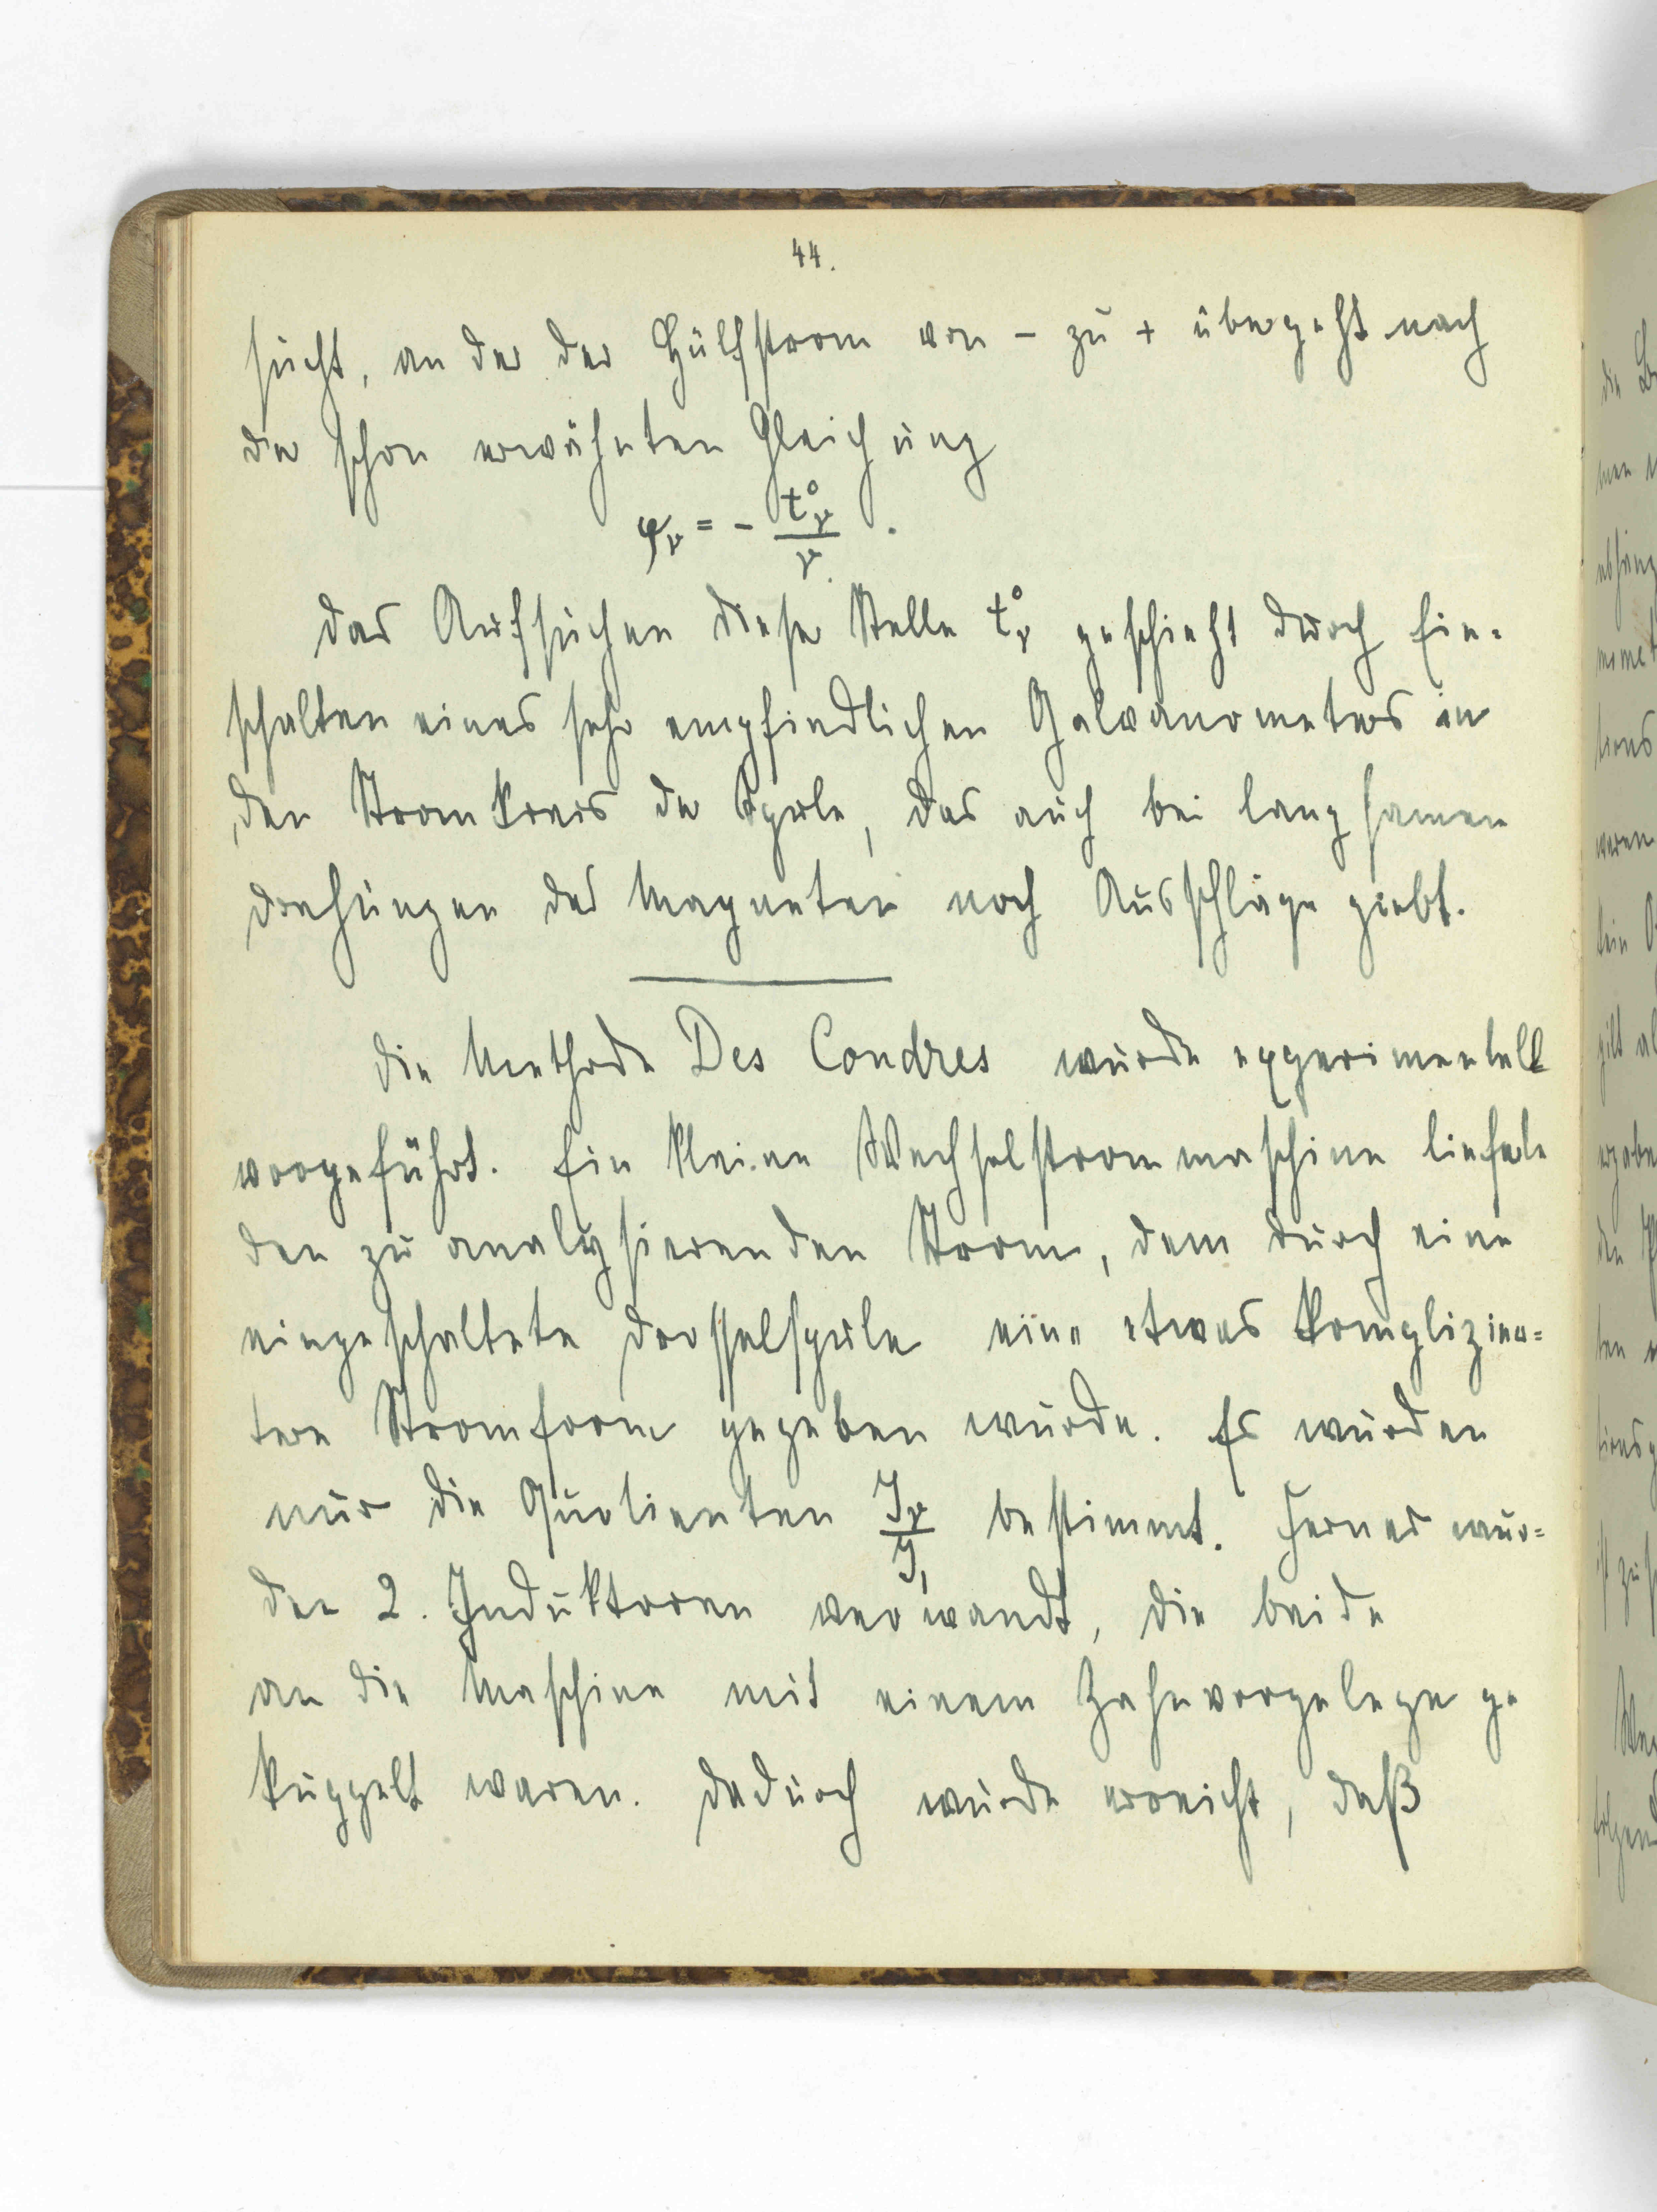 44.
sucht, an der der Hülfsstrom von - zu + übergeht nach
der schon erwähnten Gleichung
φᵥ = - t°ᵥ / ν .
Das Aufsuchen dieser Stelle t°ᵥ geschieht durch Ein-
schalten eines sehr empfindlichen Galvanometers in
den Stromkreis der Spule, das auch bei langsamen
Drehungen des Magneten noch Ausschläge giebt.
Die Methode Des Coudres wurde experimentell
vorgeführt. Eine kleine Wechselstrommaschine lieferte
den zu analysierenden Strom, dem durch eine
eingeschaltete Drosselspule eine etwas komplizier=
tere Stromform gegeben wurde. Es wurden
nur die Quotienten Jᵥ / J₁ bestimmt. Ferner wur=
den 2. Induktoren verwandt, die beide
an die Maschine mit einem Zahnvorgelege ge
kuppelt waren. Dadurch wurde erreicht, daß